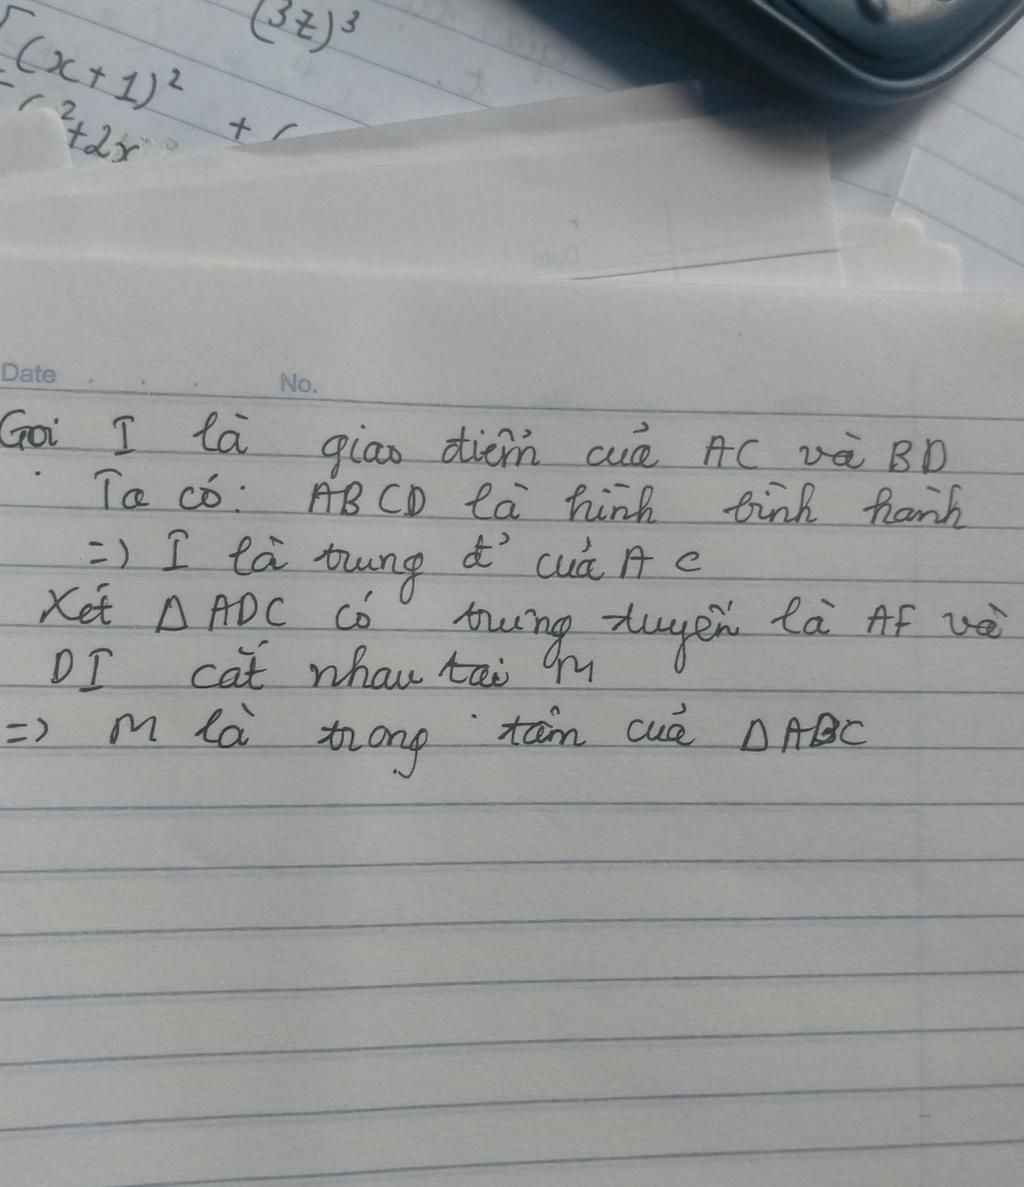 (3z)³
(x+1)²
²+2x + (
Date . . . No.
Gọi I là giao điểm của AC và BD
Ta có: ABCD là hình bình hành
=> I là trung đ' của AC
Xét Δ ADC có trung tuyến là AF và
DI cắt nhau tại M
=> M là trọng tâm của Δ ABC